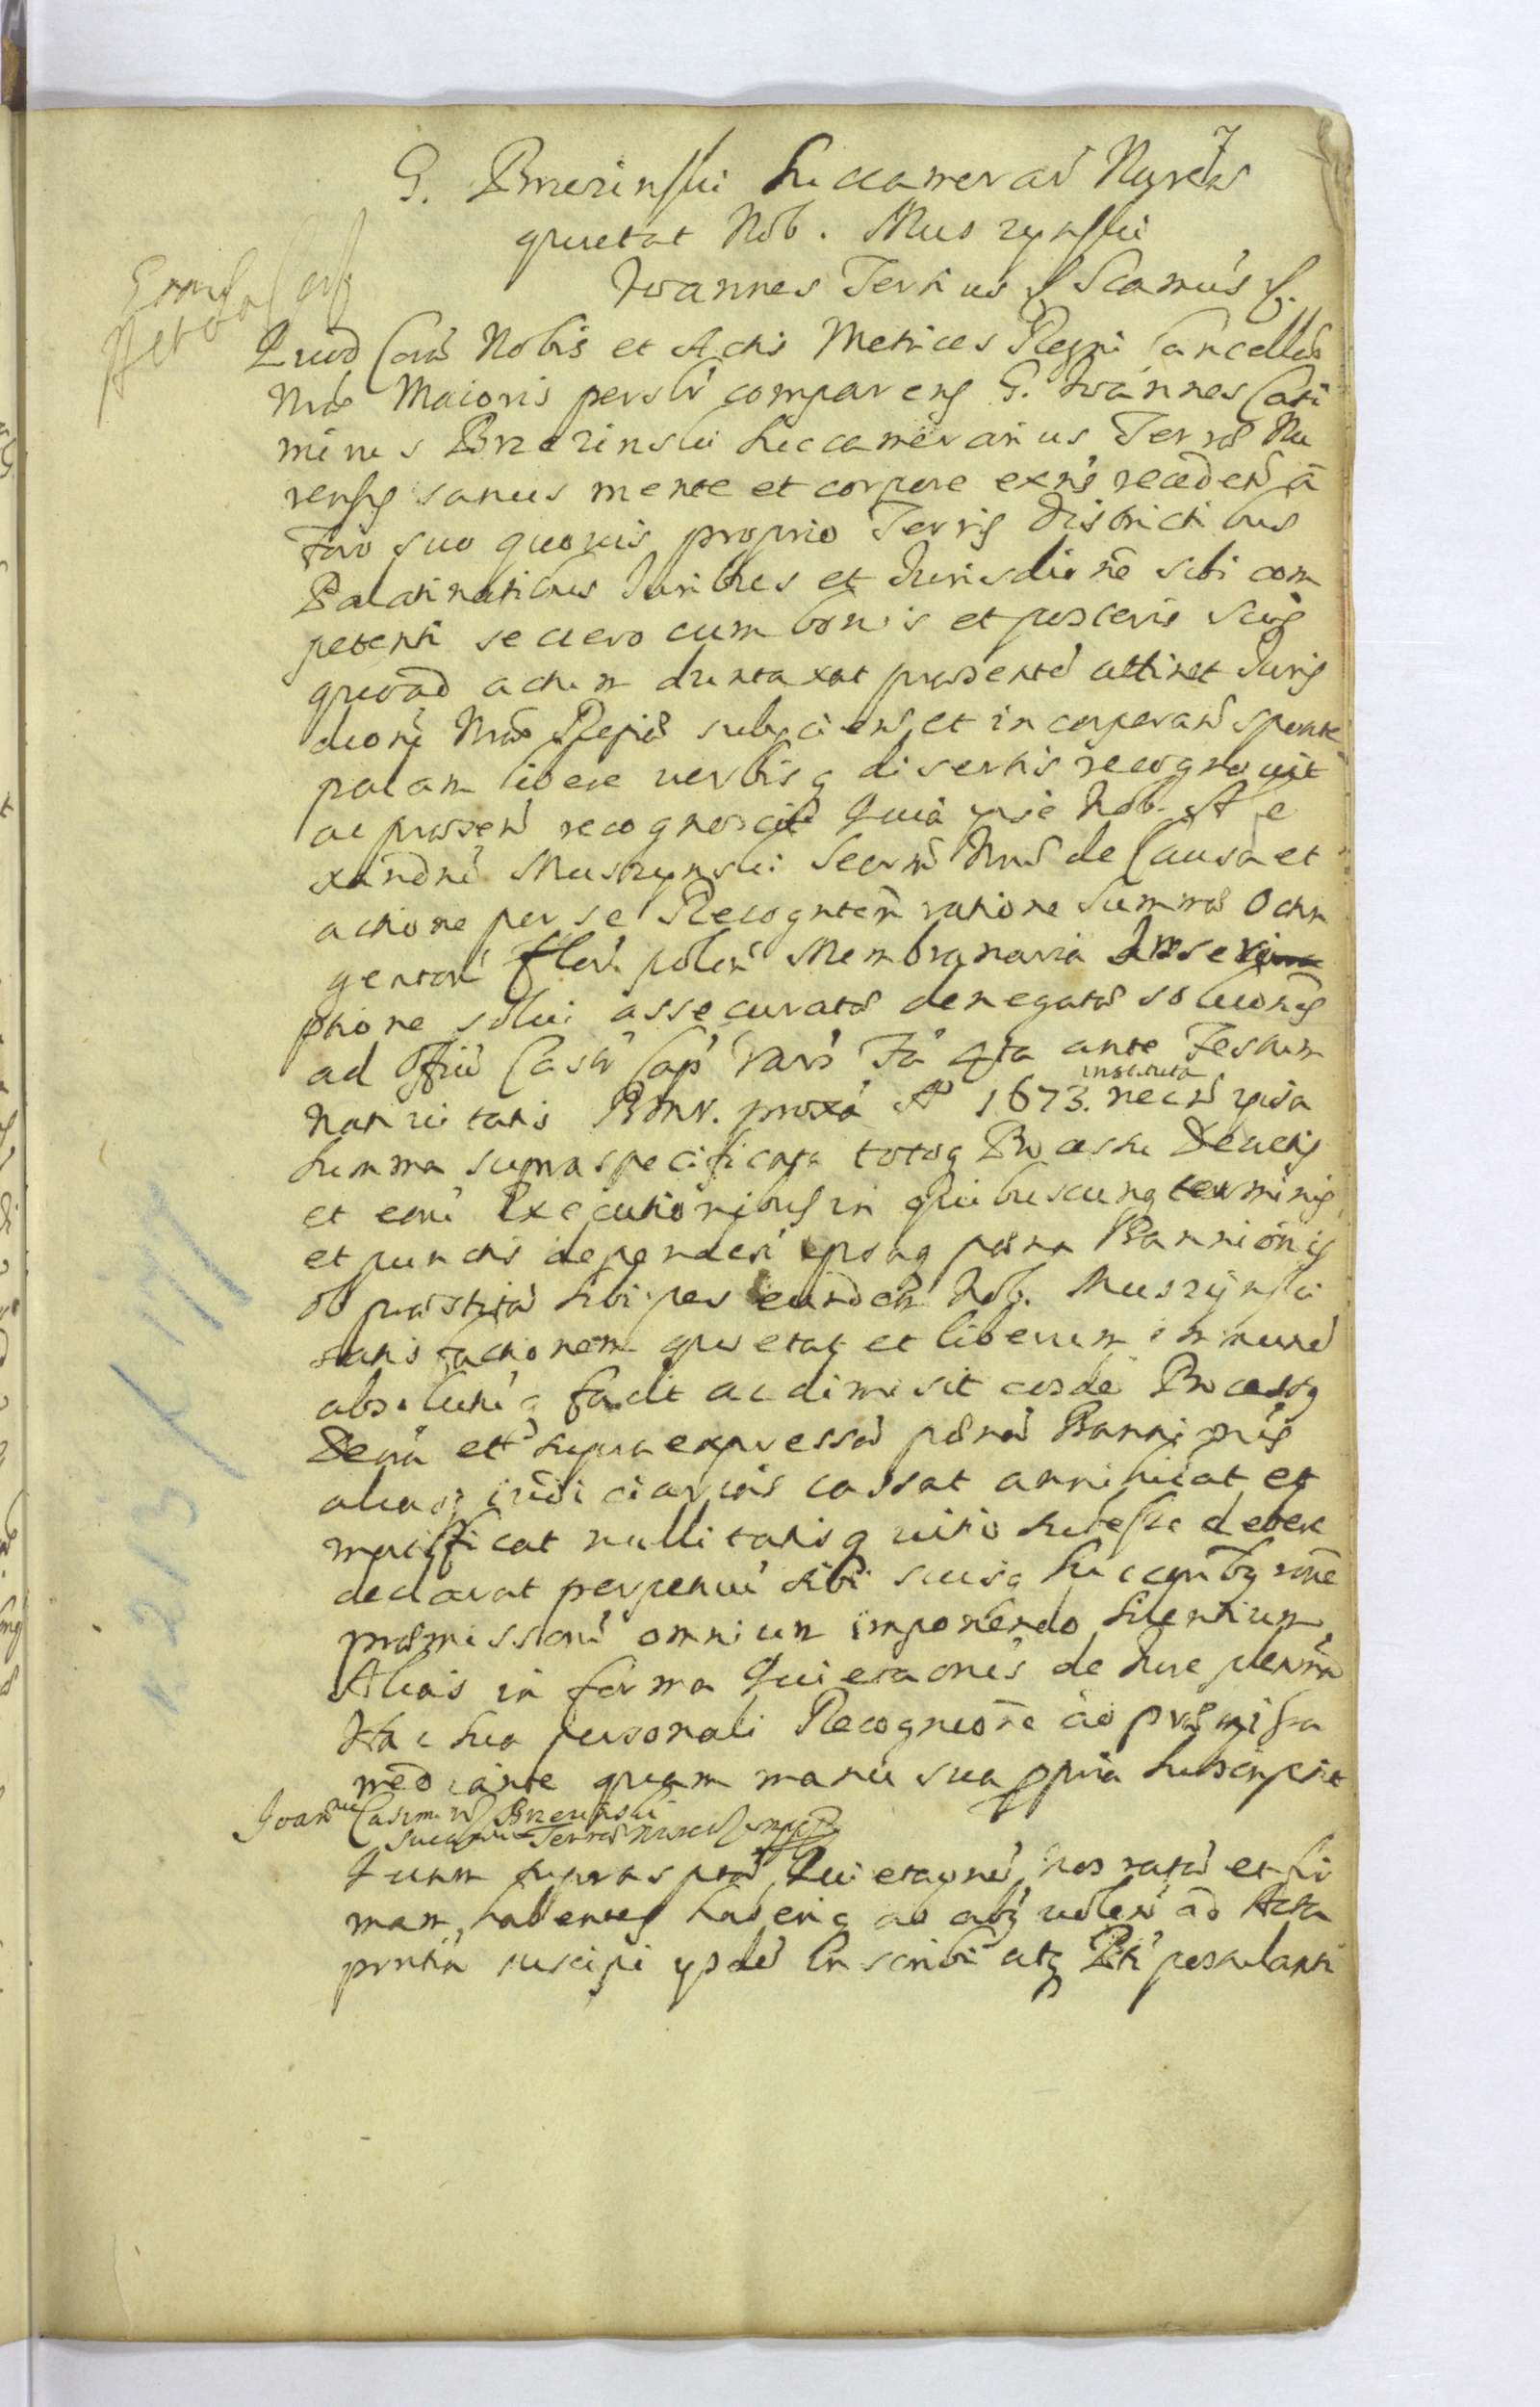 7
G. Brzezinski Succamerar Nuren
quietat Nob. Muszynski
Joannes Tertius &c Scamus &c.
Quod Cora Nobis et Actis Metrices Regni Cancellae
Nrae Maioris persolr comparens G. Joannes Casi
mirus Brzezinski Succamerarius Terrae Nu
rensis sanus mente et corpore exns receden a
Foro suo quovis proprio Terris Districtibus
Palatinatibus Juribus et Jurisdione sibi com
petenti se vero cum bonis et posteris suis
quoad actum duntaxat praesente attinet Juris
dioni Nrae Regiae subiiciens et incorporans sponte
palam libere verbisq disertis recognovit
ac praesen recognoscit Quia ipse Nob. Ale
xandru Muszynski Secrm Nrum de Causa et
actione per se Recogntem ratione Summae Octin
gentor flor. polon Membranaria Inscri
ptione solvi assecuratae denegatae solvonis
ad Offiu Castr Cap Vars Fa 4ta ante Festum
Nativitatis BMV. proxa Ao 1673. instituta necn ipsa
Summa supraspecificata totoq Processu Decretis
et eoru Executionibus in quibuscunq terminis
et punctis dependen ipsaq paena Bannionis
ob praestita sibi per eundem Nob. Muszynski
satisfactionem quietat et liberum immune
absolutuq facit ac dimisit eosde Processus
Decra et supra expressa paena Bannionis
aliaq iudiciariis cassat annihilat et
mortificat nullitatisq vitio subesse debere
declarat perpetuu sibi suisq Succribq rone
praemissoru omnium imponendo silentium
Alias in forma Quietaonis de Jure plenria
Hac sua personali Recognione ad praemissa
mediante quam manu sua ppria subscripsit
Joannes Casimirus Brzezinski
Succamer Terrae Nuren mpp
Quam suprascpta Quietaone Nos rata et fir
mam habentes haberiq ab aliis volen ad Acta
prntia suscipi ipsde Inscribi atq Pti postulanti